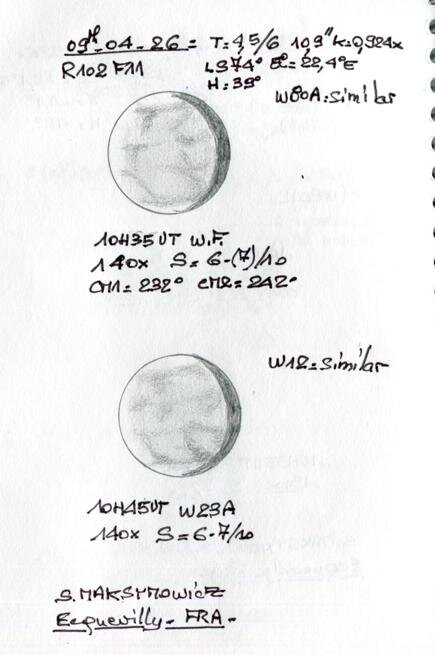 09th-04-26= T=4,5/6 10,9" k=0,924x
R102 F11 LS 74° B°=22,4°E
H:39°
W80A:similar
10H35UT W.F.
140x S=6-(7)/10
CM1=232° CM2=242°
W12=similar
10H45UT W23A
140x S=6-7/10
S.MAKSYMOWICZ
Ecquevilly-FRA-